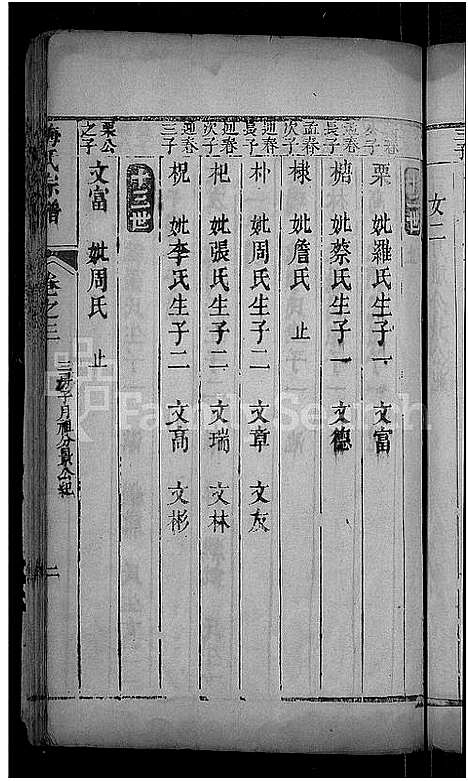 三子
女二
十二世
春
長子
栗 妣羅氏生子一 文富
孟春
長子
楷 妣蔡氏生子一 文德
孟春
次子
棣 妣詹氏 止
迎春
長子
朴 妣周氏生子二 文章 文灰
迎春
次子
杞 妣張氏生子二 文瑞 文林
迎春
三子
柷 妣李氏生子二 文高 文彬
十三世
栗公
之子
文富 妣周氏 止
梅氏宗譜
卷之三
三房子月祖分貟公紀
二
FamilySearch